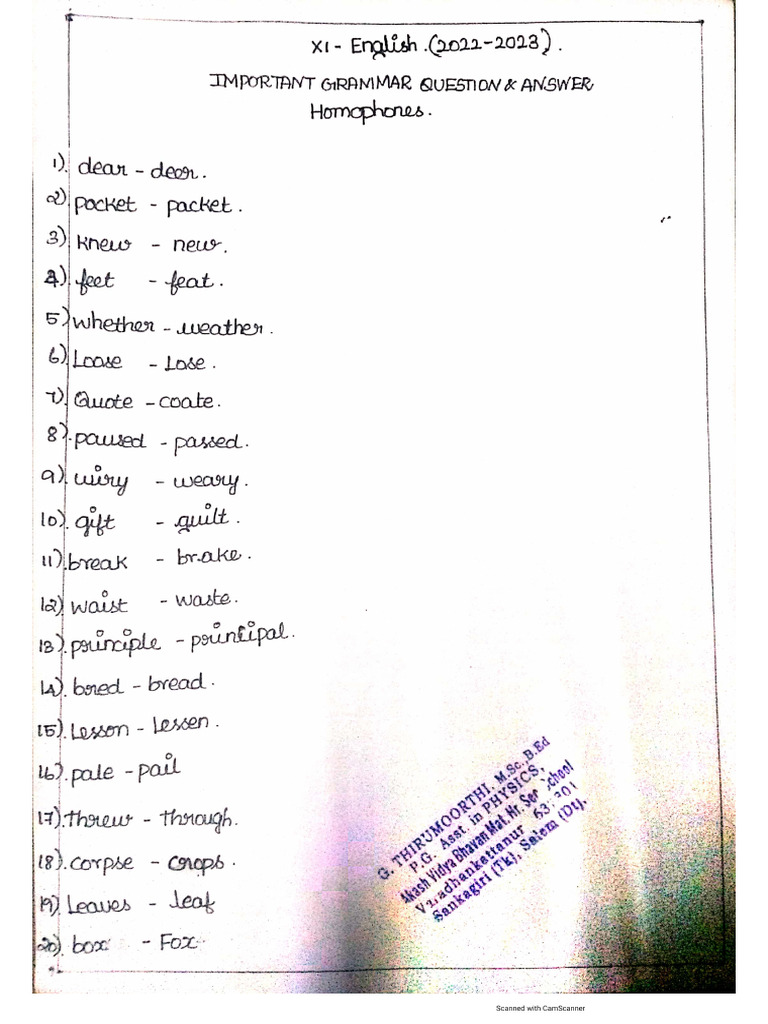 XI - English. (2022-2023).
IMPORTANT GRAMMAR QUESTION & ANSWER
Homophones.
1). dear - deer.
2). pocket - packet.
3). knew - new.
4). feet - feat.
5) whether - weather.
6). Loose - Lose.
7). Quote - coate.
8). paused - passed.
9). wiry - weary.
10). gift - guilt.
11). break - brake.
12) waist - waste.
13). principle - principal.
14). bred - bread.
15). Lesson - Lessen.
16). pale - pail
17). threw - through.
18). corpse - crops.
19). Leaves - leaf
20). box - Fox
G. THIRUMOORTHI, M.Sc.,B.Ed
P.G. Asst. in PHYSICS,
Akash Vidya Bhavan Mat. Hr. Sec School
Sankagiri (Tk), Salem (Dt).
Scanned with CamScanner